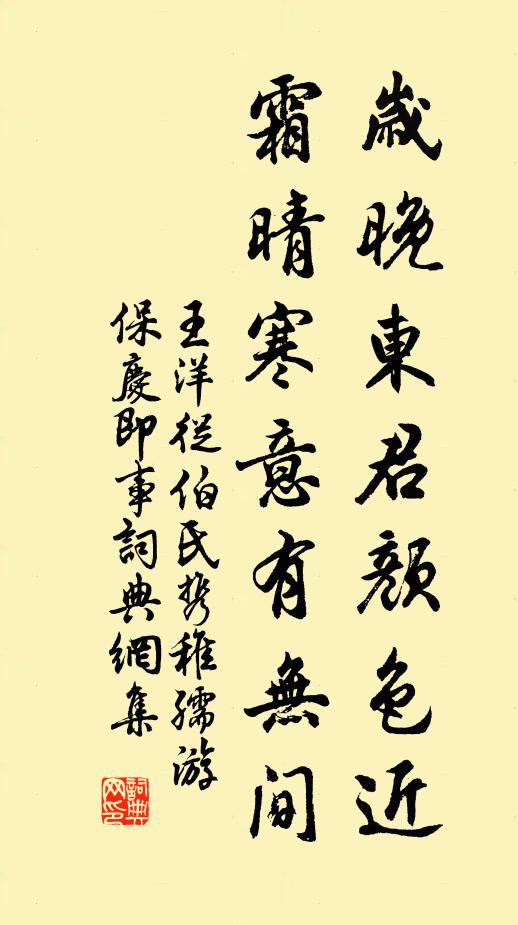 歲晚東君顏色近
霜晴寒意有無間
王洋從伯氏携稚孺游
保慶即事詞典網集
詞典
网印